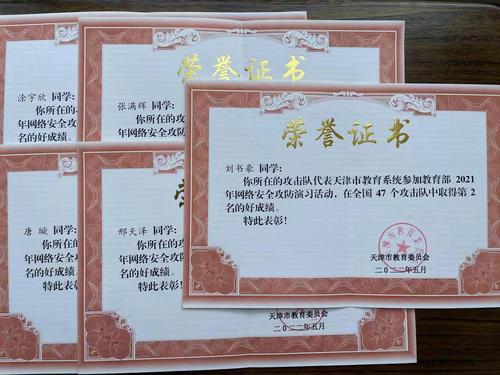 涂宇欣 同学:
你所在的
年网络安全攻
名的好成绩。
特此表
荣誉证书
张满辉 同学:
你所在的攻
年网络安全攻防
名的好成绩。
唐 璇 同学:
你所在的
年网络安全攻
名的好成绩。
特此表
荣誉证书
邢天泽 同学:
你所在的攻
年网络安全攻防
名的好成绩。
特此表彰!
天津市教育委员会
二〇二二年五月
荣誉证书
刘书豪 同学:
你所在的攻击队代表天津市教育系统参加教育部 2021
年网络安全攻防演习活动,在全国 47 个攻击队中取得第 2
名的好成绩。
特此表彰!
天津市教育委员会
二〇二二年五月